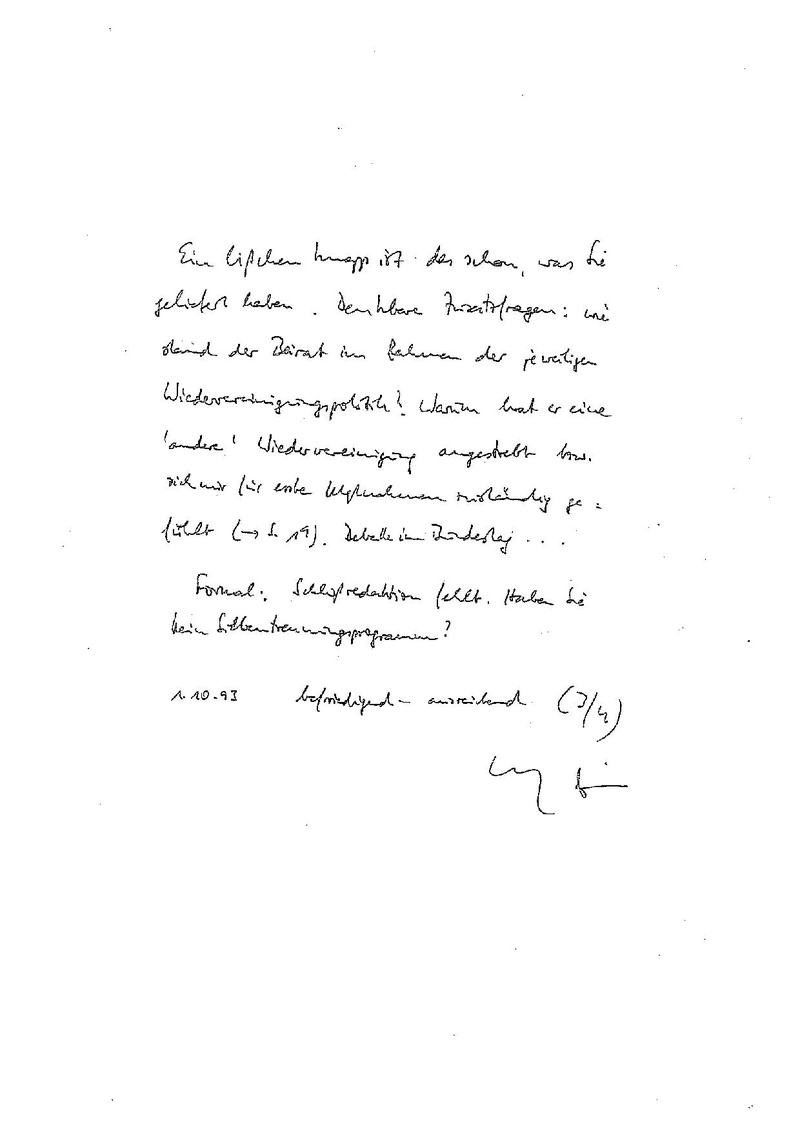 Ein bißchen knapp ist das schon, was Sie
geliefert haben. Denkbare Zusatzfragen: wie
stand der Beirat im Rahmen der jeweiligen
Wiedervereinigungspolitik? Warum hat er eine
'andere' Wiedervereinigung angestrebt bzw.
sich nur für erste Maßnahmen zuständig ge=
fühlt (→ S. 19). Debatte im Bundestag...
Formal: Schlußredaktion fehlt. Haben Sie
kein Silbentrennungsprogramm?
1.10.93 befriedigend - ausreichend (3/4)